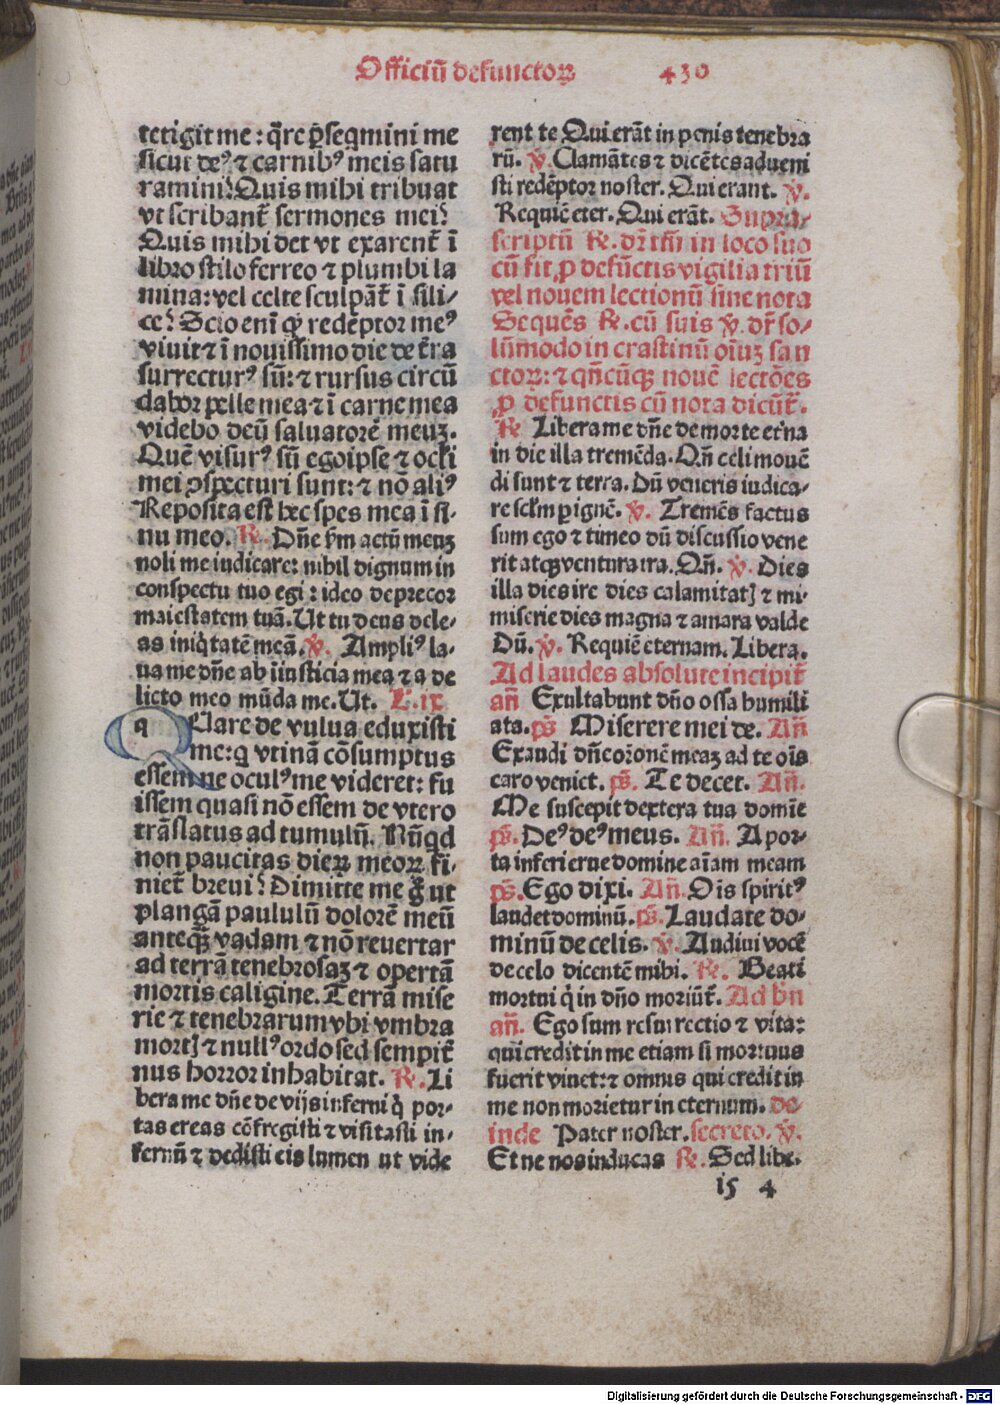 Officiū defunctoꝝ 430
tetigit me: q̄re ꝑseqmini me
sicut deꝰ ⁊ carnibꝰ meis satu
ramini? Quis mihi tribuat
vt scribant᷑ sermones mei?
Quis mihi det vt exarent᷑ ī
libro stilo ferreo ⁊ plumbi la
mina: vel celte sculpāt᷑ ī sili/
ce? Scio eni ꝙ redēptor meꝰ
viuit ⁊ ī nouissimo die de t̄ra
surrecturꝰ sū: ⁊ rursus circū
dabor pelle mea ⁊ ī carne mea
videbo deū saluatorē meuꝫ.
Quē visurꝰ sū ego ipse ⁊ ocl̄i
mei ꝯspecturi sunt: ⁊ nō aliꝰ
Reposita est hec spes mea ī si-
nu meo. ℟. Dn̄e s̄m actū meuꝫ
noli me iudicare: nihil dignum in
conspectu tuo egi: ideo deprecor
maiestatem tuā. Ut tu deus dele-
as iniq̇tatē meā. ℣. Ampliꝰ la-
ua me dn̄e ab iiusticia mea ⁊ a de
licto meo mūda me. Ut. L. ix
q Uare de vulua eduxisti
me: q vtinā cōsumptus
essem ne oculꝰ me videret: fu
issem quasi nō essem de vtero
trāslatus ad tumulū. Nūqd
non paucitas dieꝝ meoꝝ fi-
niet᷑ breui? Dimitte me g̊ ut
plangā paululū dolorē meū
anteqꝫ̄ vadam ⁊ nō reuertar
ad terrā tenebrosaꝫ ⁊ opertā
mortis caligine. Terrā mise
rie ⁊ tenebrarum vbi vmbra
mortꝭ ⁊ nullꝰ ordo sed sempit᷑
nus horror inhabitat. ℟. Li
bera me dn̄e de vijs inferni q̇ por-
tas ereas cōfregisti ⁊ visitasti in-
fernū ⁊ dedisti eis lumen ut vide
rent te Qui erāt in penis tenebra
rū. ℣. Clamātes ⁊ dicētes adueni
sti redēptor noster. Qui erant. ℣.
Requiē eter. Qui erāt. Supra/
scriptū ℟. dr̄ tm̄ in loco suo
cū fit ꝓ defūctis vigilia triū
vel nouem lectionū sine nota
Sequēs ℟. cū suis ℣. dr̄ so/
lūmodo in crastinū oīuꝫ san
ctoꝝ: ⁊ qn̄cūqꝫ nouē lectōes
ꝓ defunctis cū nota dicūt᷑.
℟ Libera me dn̄e de morte et᷑na
in die illa tremēda. Qn̄ celi mouē
di sunt ⁊ terra. Dū veneris iudica-
re scl̄m ꝑ ignē. ℣. Tremēs factus
sum ego ⁊ timeo dū discussio vene
rit atqꝫ ventura ira. Qn̄. ℣. Dies
illa dies ire dies calamitatꝭ ⁊ mi-
miserie dies magna ⁊ amara valde
Dū. ℣. Requiē eternam. Libera.
Ad laudes absolute incipit᷑
an̄ Exultabunt dn̄o ossa humili
ata. ps̄ Miserere mei de. An̄
Exaudi dn̄e orōnē meaꝫ ad te oīs
caro veniet. ps̄. Te decet. An̄.
Me suscepit dextera tua domīe
ps̄. Deꝰ deꝰ meus. An̄. A por-
ta inferi erue domine aīam meam
ps̄. Ego dixi. An̄. Oīs spiritꝰ
laudet dominū. ps̄. Laudate do-
minū de celis. ℣. Audiui vocē
de celo dicentē mihi. ℟. Beati
mortui q̇ in dn̄o moriūt᷑. Ad bn̄
an̄. Ego sum resurrectio ⁊ vita:
qui credit in me etiam si mortuus
fuerit viuet: ⁊ omnis qui credit in
me non morietur in eternum. de-
inde Pater noster. secreto. ℣.
Et ne nos inducas ℟. Sed libe.
is 4
Digitalisierung gefördert durch die Deutsche Forschungsgemeinschaft - DFG